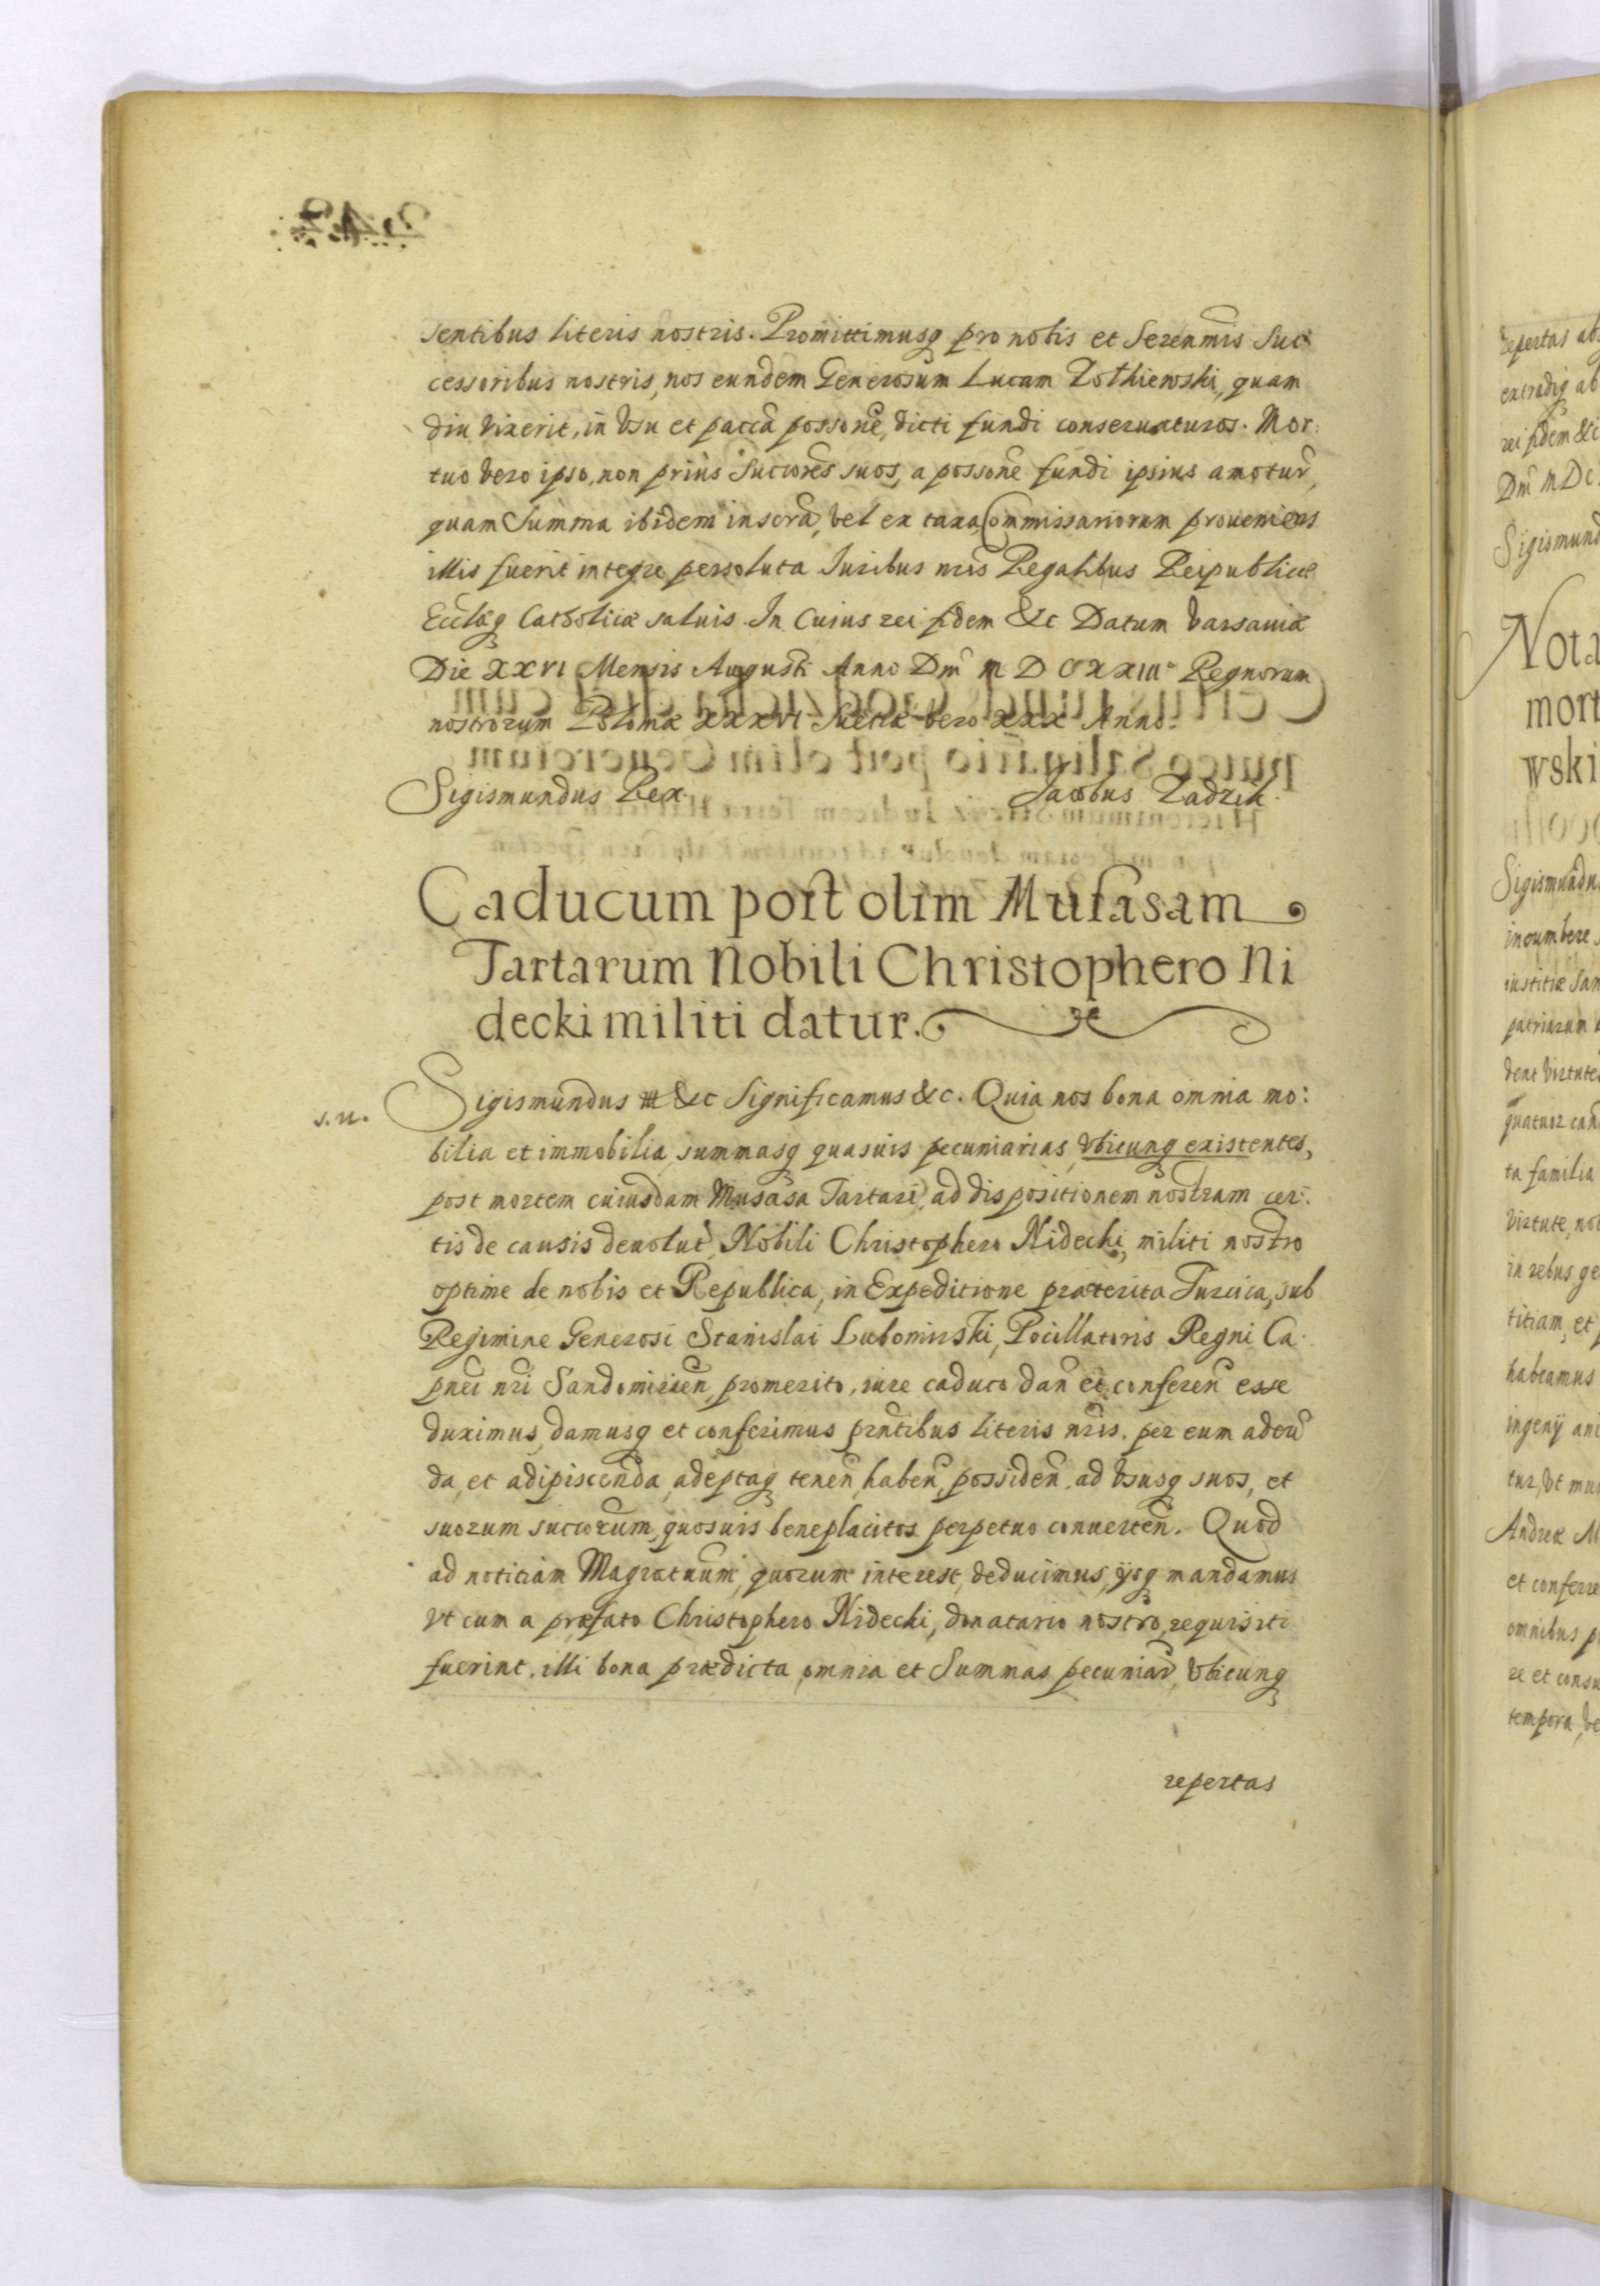 sentibus literis nostris. Promittimusq pro nobis et Serenmis Suc
cessoribus nostris, nos eundem Generosum Lucam Zolkiewski, quam
diu vixerit, in vsu et pacca possone, dicti fundi conseruaturos. Mor:
tuo vero ipso, non prius Succores suos, a possone fundi ipsius amotur,
quam Summa ibidem inscra, vel ex taxa Commissariorum proueniens
illis fuerit integre persoluta Juribus nris Regalibus Reipublicæ
Ecclæq Catholicæ saluis. In Cuius rei fidem &c Datum Varsauiæ
Die XXVI Mensis Augusti Anno Dni M D C XXIII° Regnorum
nostrorum Poloniæ XXXVI Sueciæ vero XXX Anno.
Sigismundus Rex. Jacobus Zadzik.
Caducum post olim Musasam
Tartarum Nobili Christophero Ni
decki militi datur.
s.n. Sigismundus III &c Significamus &c. Quia nos bona omnia mo:
bilia et immobilia, summasq quasuis pecuniarias, vbicunq existentes,
post mortem cuiusdam Musasa Tartari, ad dispositionem nostram cer:
tis de causis deuolut, Nobili Christophero Nidecki, militi nostro
optime de nobis et Republica, in Expeditione præterita Turcica, sub
Regimine Generosi Stanislai Lubomirski, Pocillatoris Regni Ca
pnei nri Sandomirien, promerito, iure caduco dan et conferen esse
duximus, damusq et conferimus prntibus literis nris. per eum adeun
da, et adipiscenda, adeptaq tenen, haben, possiden, ad vsusq suos, et
suorum succorum, quosuis beneplacitos perpetuo conuerten. Quod
ad notitiam Magratuum, quorum interest, deducimus, ijsq mandamus
vt cum a præfato Christophero Nidecki, donatario nostro, requisiti
fuerint, illi bona prædicta, omnia et Summas pecuniar, vbicunq
repertas